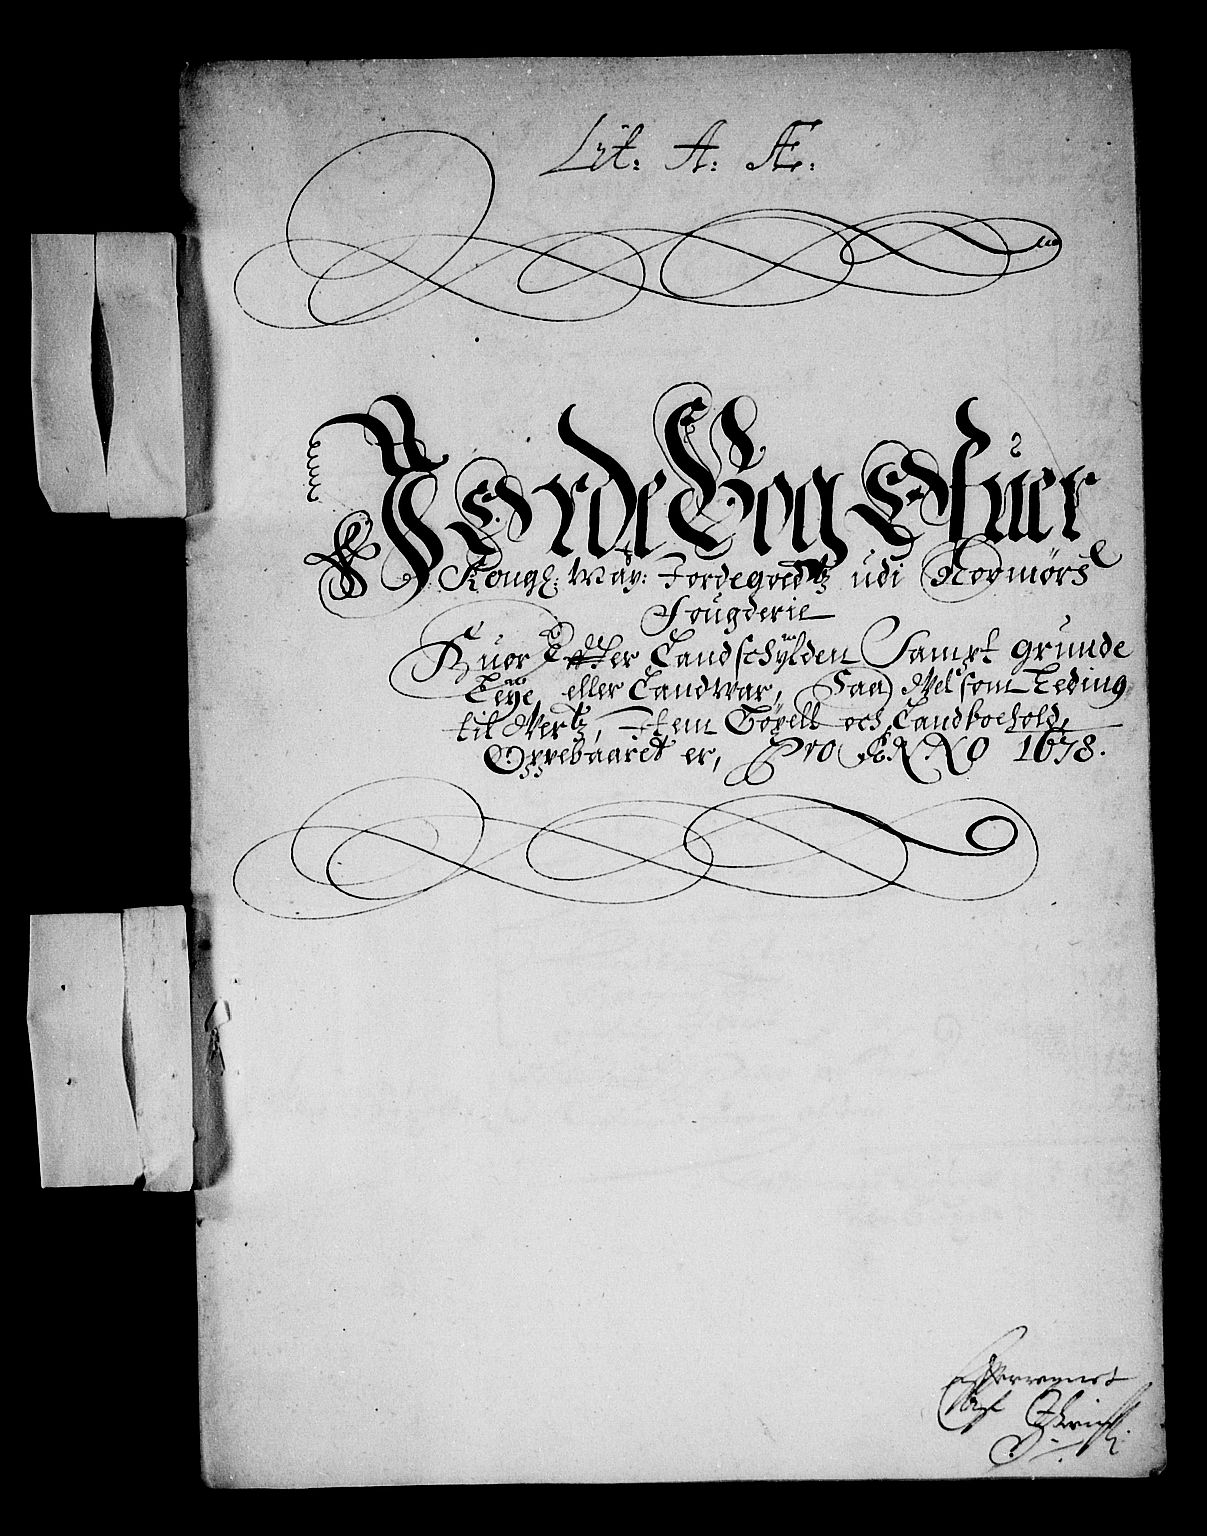 Lit: A. Æ.
Jorde Bog Ofuer
Kongl: May: Jordegoedtz udi Nordmørs
Fougderie
Huor Efter Landschylden Sampt grunde
Leye, eller Landwar, Saa Vel som Leding
til Vertz, Item Bøxell och Landboehold,
Oppebaaret er, Pro ANNO 1678.
Efterregnet